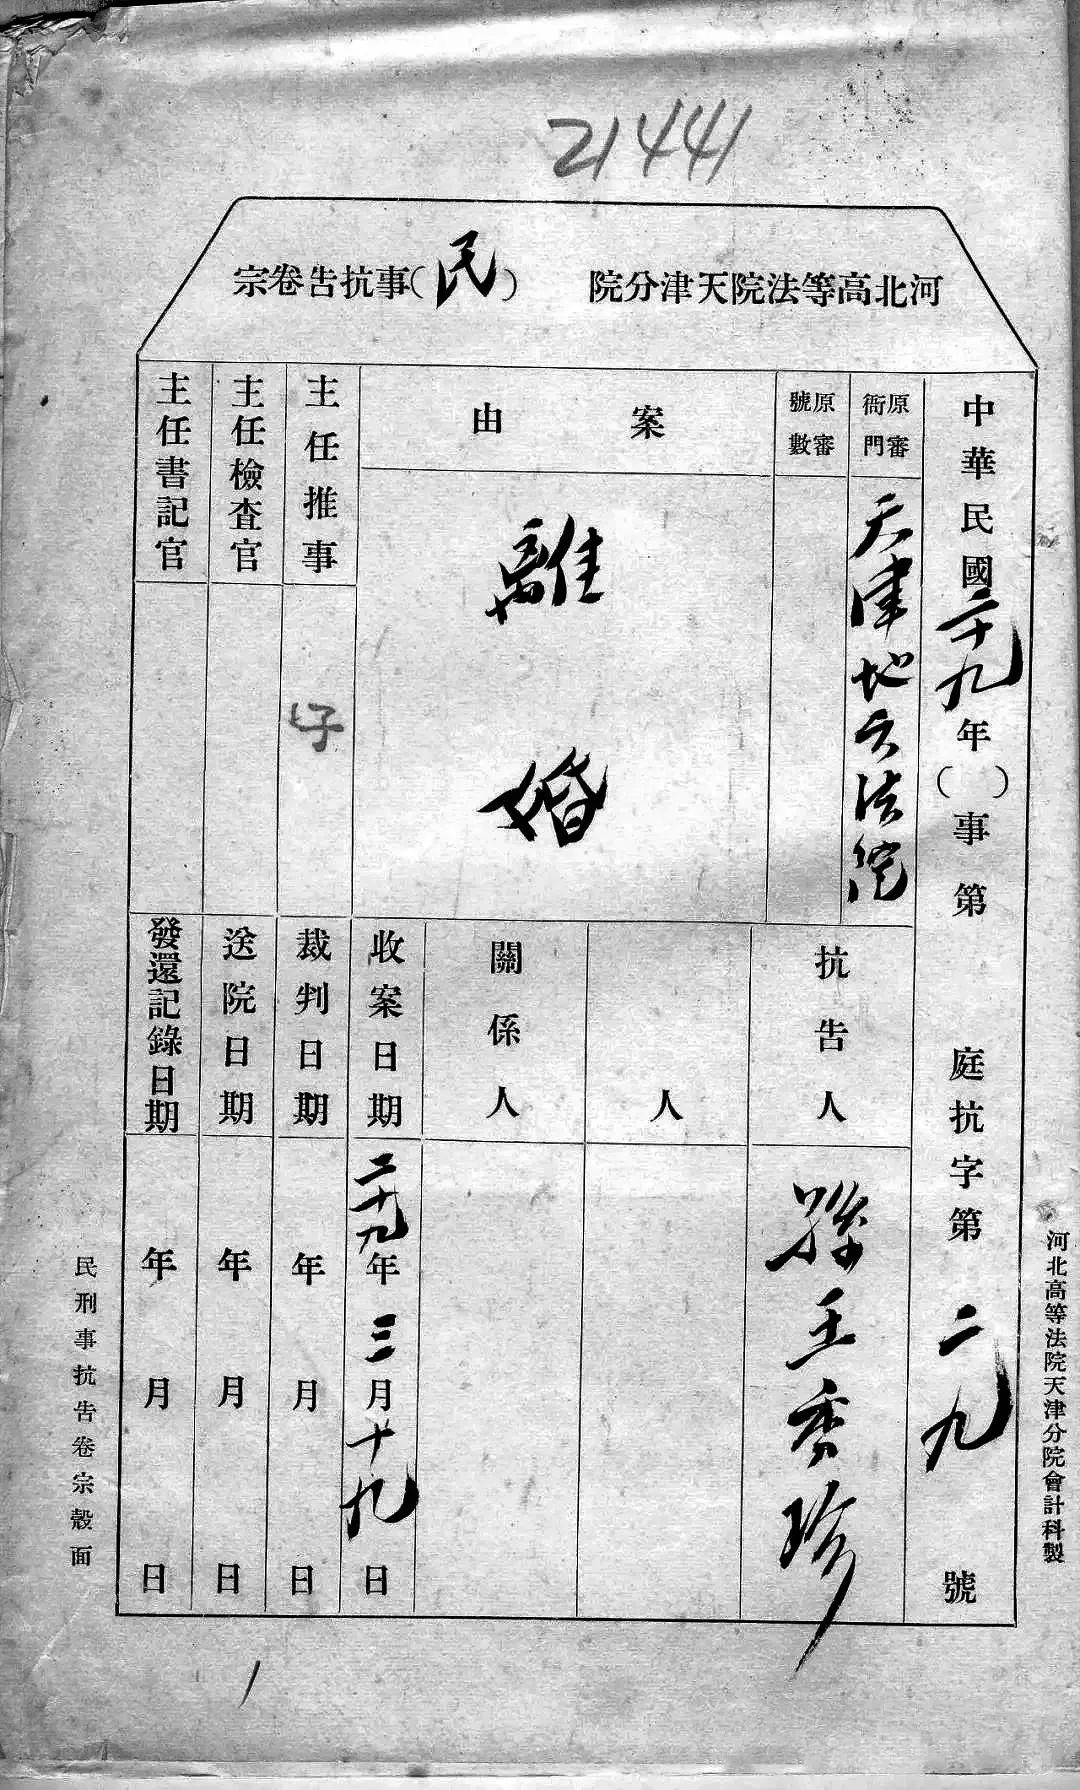 21441
河北高等法院天津分院
（民）事抗告卷宗
中華民國二十九年（ ）事第 庭抗字第二九號
原審衙門
天津地方法院
原審號數
案由
離婚
主任推事
主任檢查官
主任書記官
抗告人
孫王秀珍
人
關係人
收案日期
二十九年三月十九日
裁判日期
年月日
送院日期
年月日
發還記錄日期
年月日
河北高等法院天津分院會計科製
民刑事抗告卷宗殼面